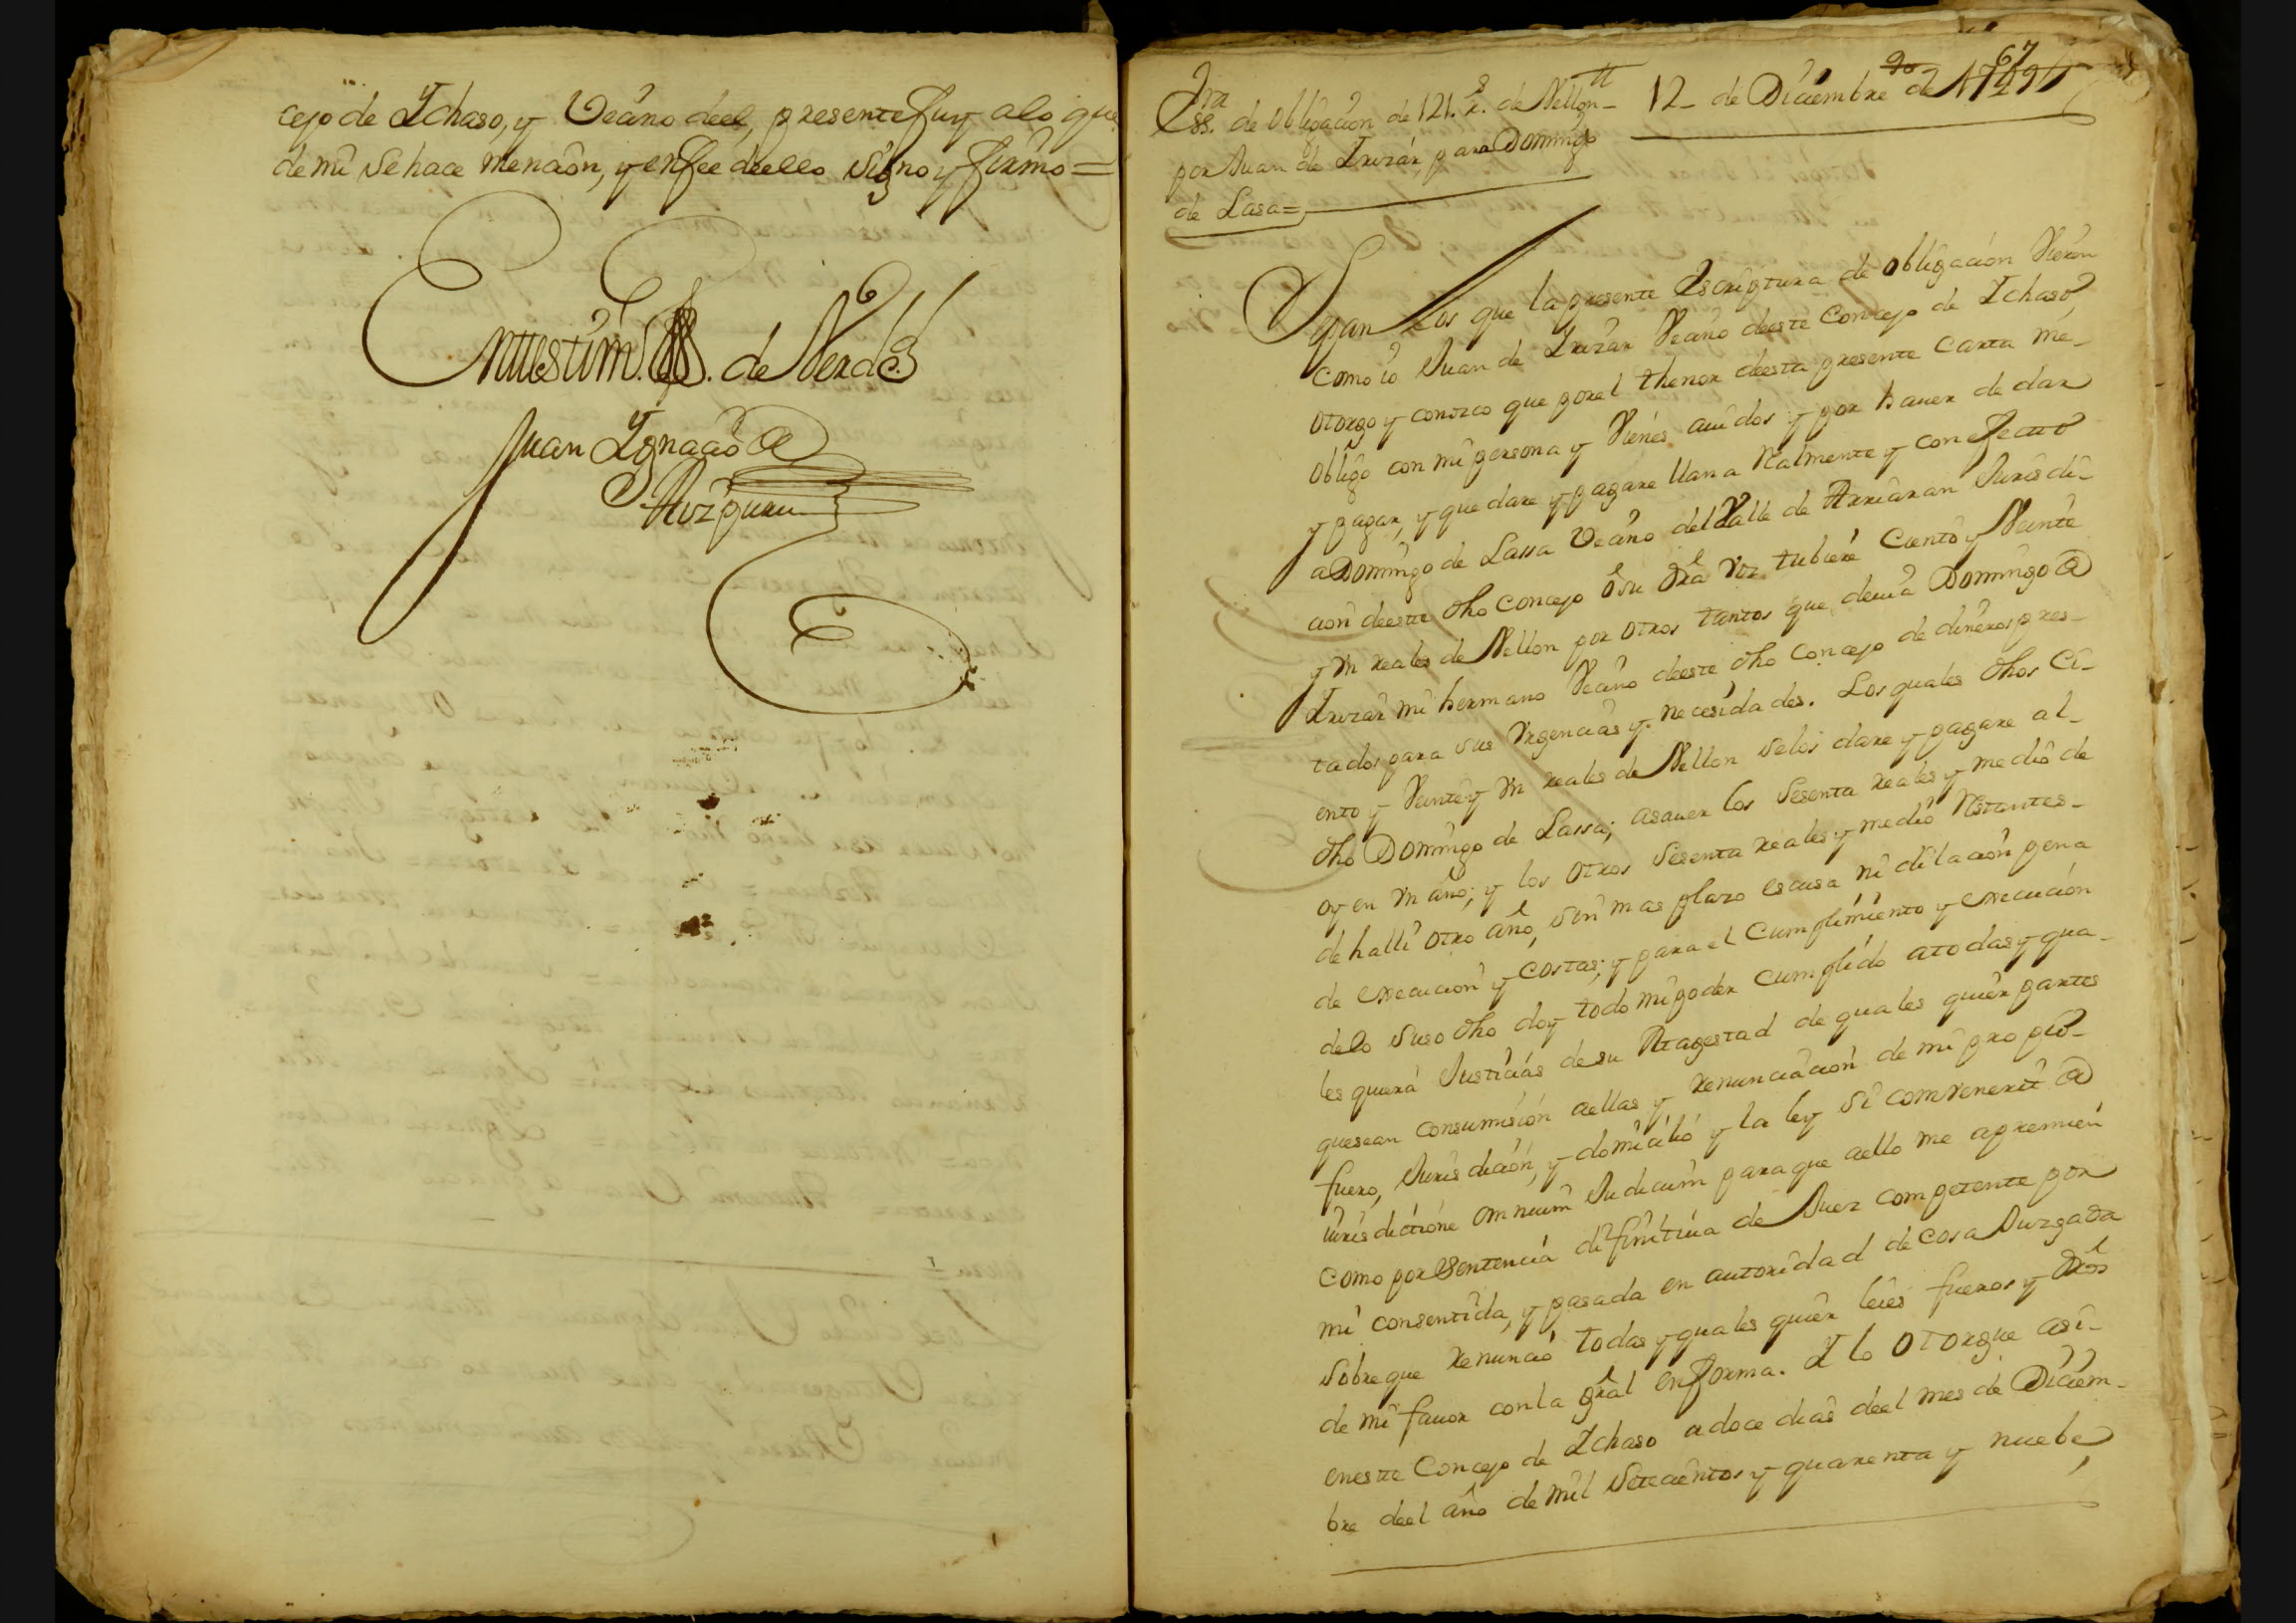 cejo de Ychaso, y Vecino deel, presente fuy alo que
de mi se hace mencion, y enfee deello signo y firmo =
En testim.o de Verdd.
Juan Ygnacio @
Aizpuru
67
Ess.ra de obligacion de 121. Rs. de Vellon 12 de Diciembre de 1749
por Juan de Irizar, para Domingo
de Lasa =
Sepan Los que la presente Escriptura de obligacion Vieren
como io Juan de Irizar Vecino deeste Concejo de Ychaso
otorgo y conozco que por el thenor deesta presente carta me
obligo con mi persona y Vienes auidos y por hauer de dar
y pagar, y que dare y pagare llana Realmente y con efecto
a Domingo de Lassa Vecino del Valle de Arriaran Jurisdi-
cion deeste dho Concejo ô su dra voz tubiere Ciento y Veinte
y Vn reales de Vellon por otros tantos que deuia Domingo @
Irizar mi hermano Vecino deeste dho Concejo de dineros pres-
tados para sus Vrgencias y necesidades. Los quales dhos Ci-
ento y Veinte y Vn reales de Vellon selos dare y pagare al
dho Domingo de Lassa; asauer los Sesenta reales y medio de
oy en Vn año; y los otros Sesenta reales y medio Restantes
de halli otro año, sin mas plazo escusa ni dilacion pena
de execucion y costas; y para el Cumplimiento y execucion
delo suso dho doy todo mi poder cumplido atodas y qua-
les quiera Justicias de su Magestad de quales quier partes
quesean consumision aellas y renunciacion de mi propio
fuero, Jurisdicion, y domicilio y la ley si combenerit @
iurisdictione omnium Judicum paraque aello me apremien
como por Sentencia difinitiua de Juez competente por
mi consentida, y pasada en autoridad de cosa Juzgada
sobreque renuncio todas y quales quier leies fueros y dros
de mi fauor conla gral enforma. Y lo otorgue asi
eneste Concejo de Ychaso adoce dias deel mes de Diciem-
bre deel año de mil Setecientos y quarenta y nuebe